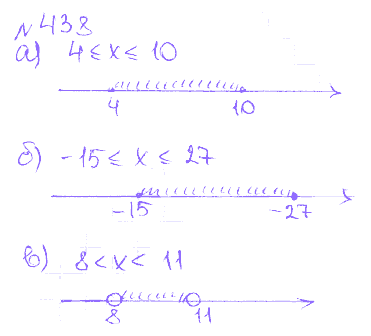 №438
а) 4 ≤ x ≤ 10
4 10
б) -15 ≤ x ≤ 27
-15 -27
в) 8 < x < 11
8 11